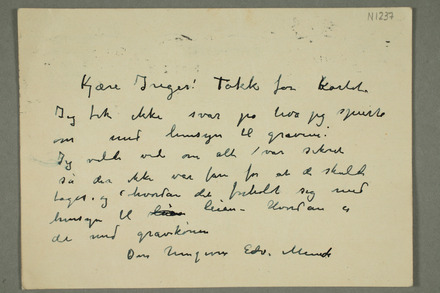 N1237
Kjære Inger! Takk for Kortet
Jeg fik ikke svar på hva jeg spurte
om med hensyn til gravene
Jeg vilde vide om alt var sikret
så der ikke var fare for at de skulde
tages og hvordan det forholdt sig med
hensyn til leien – Hvordan er
de med gravstenen
Din hengivne Edv. Munch